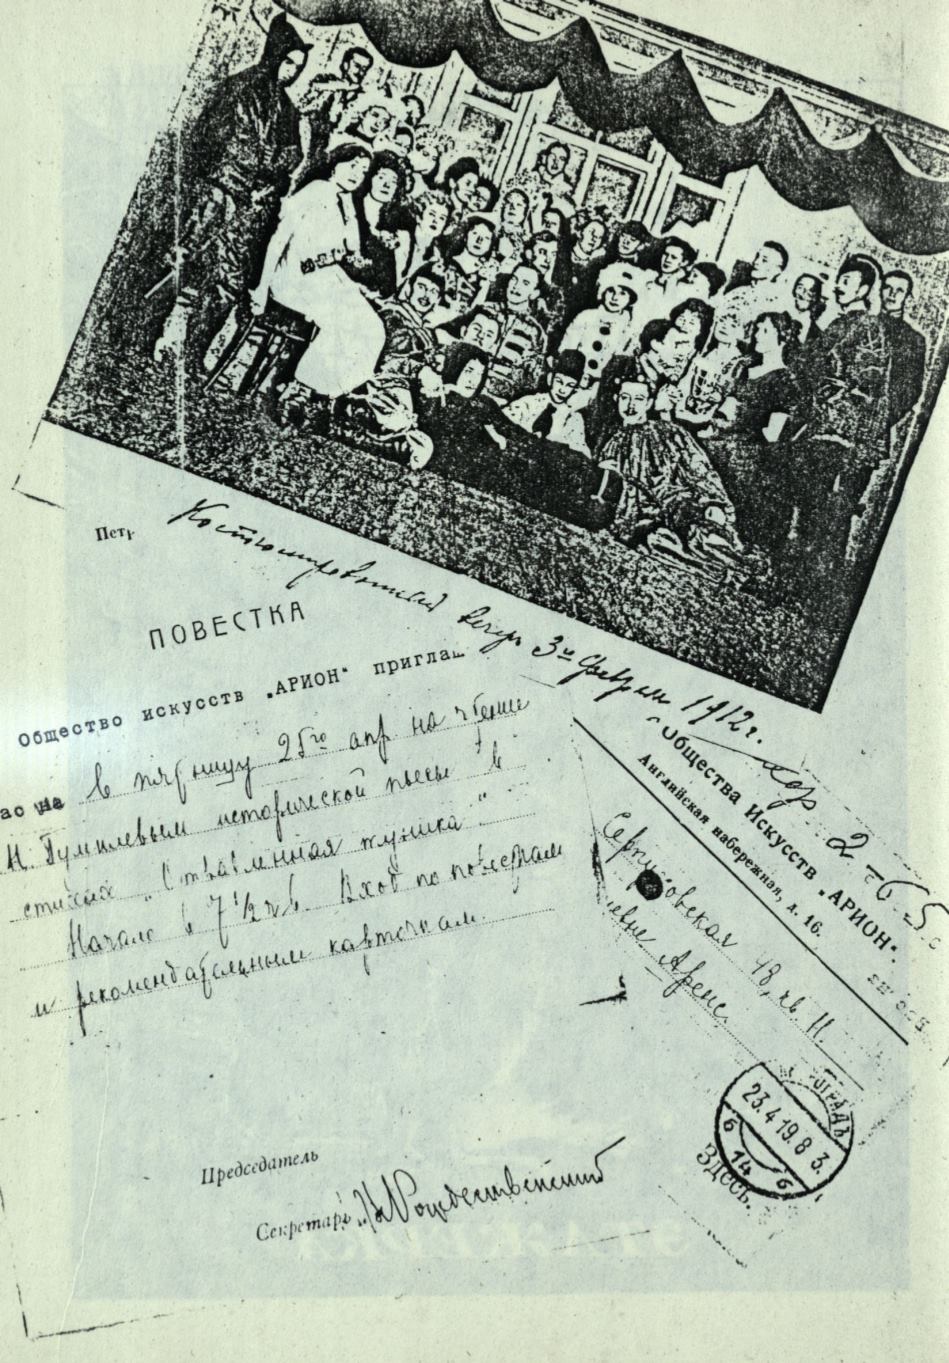 Костюмированный вечер 3го февраля 1912 г.
Петр
ПОВЕСТКА
Общество искусств „АРИОН" приглаш
ас на в пятницу 25го апр на чтение
Н. Гумилевым исторической пьесы в
стихах „Отравленная туника".
Начало в 7 1/2 ч. в. Вход по повесткам
и рекомендательным карточкам.
Председатель
Секретарь В Рождественский
Общества Искусств „АРИОН".
Английская набережная, д. 16.
2-6-5
Серпуховская 48, кв 11
Аренс.
ОГРАДЪ
23.4.19.8 3.
6 14 6
Здесь.